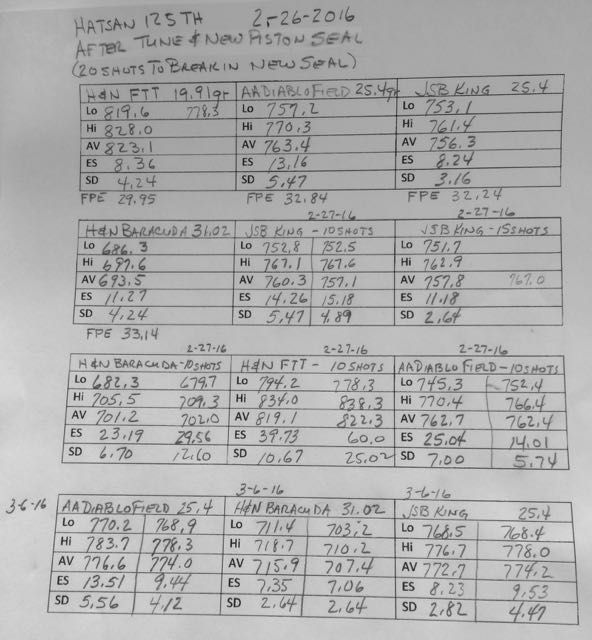 HATSAN 125TH 2-26-2016
AFTER TUNE & NEW PISTON SEAL
(20 SHOTS TO BREAK IN NEW SEAL)
H&N FTT 19.91gr
Lo 819.6 778.3
Hi 828.0
AV 823.1
ES 8.36
SD 4.24
FPE 29.95
AADIABLO FIELD 25.4gr
Lo 757.2
Hi 770.3
AV 763.4
ES 13.16
SD 5.47
FPE 32.84
JSB KING 25.4
Lo 753.1
Hi 761.4
AV 756.3
ES 8.24
SD 3.16
FPE 32.24
H&N BARACUDA 31.02
Lo 686.3
Hi 697.6
AV 693.5
ES 11.27
SD 4.24
FPE 33.14
2-27-16
JSB KING - 10 SHOTS
Lo 752.8 752.5
Hi 767.1 767.6
AV 760.3 757.1
ES 14.26 15.18
SD 5.47 4.89
2-27-16
JSB KING - 15 SHOTS
Lo 751.7
Hi 762.9
AV 757.8 767.0
ES 11.18
SD 2.64
2-27-16
H&N BARACUDA-10 SHOTS
Lo 682.3 679.7
Hi 705.5 709.3
AV 701.2 702.0
ES 23.19 29.56
SD 6.70 12.60
2-27-16
H&N FTT - 10 SHOTS
Lo 794.2 778.3
Hi 834.0 838.3
AV 819.1 822.3
ES 39.73 60.0
SD 10.67 25.02
2-27-16
AADIABLO FIELD -10 SHOTS
Lo 745.3 752.4
Hi 770.4 766.4
AV 762.7 762.4
ES 25.04 14.01
SD 7.00 5.74
3-6-16
AADIABLO FIELD 25.4
Lo 770.2 768.9
Hi 783.7 778.3
AV 776.6 774.0
ES 13.51 9.44
SD 5.56 4.12
3-6-16
H&N BARACUDA 31.02
Lo 711.4 703.2
Hi 718.7 710.2
AV 715.9 707.4
ES 7.35 7.06
SD 2.64 2.64
3-6-16
JSB KING 25.4
Lo 768.5 768.4
Hi 776.7 778.0
AV 772.7 774.2
ES 8.23 9.53
SD 2.82 4.47